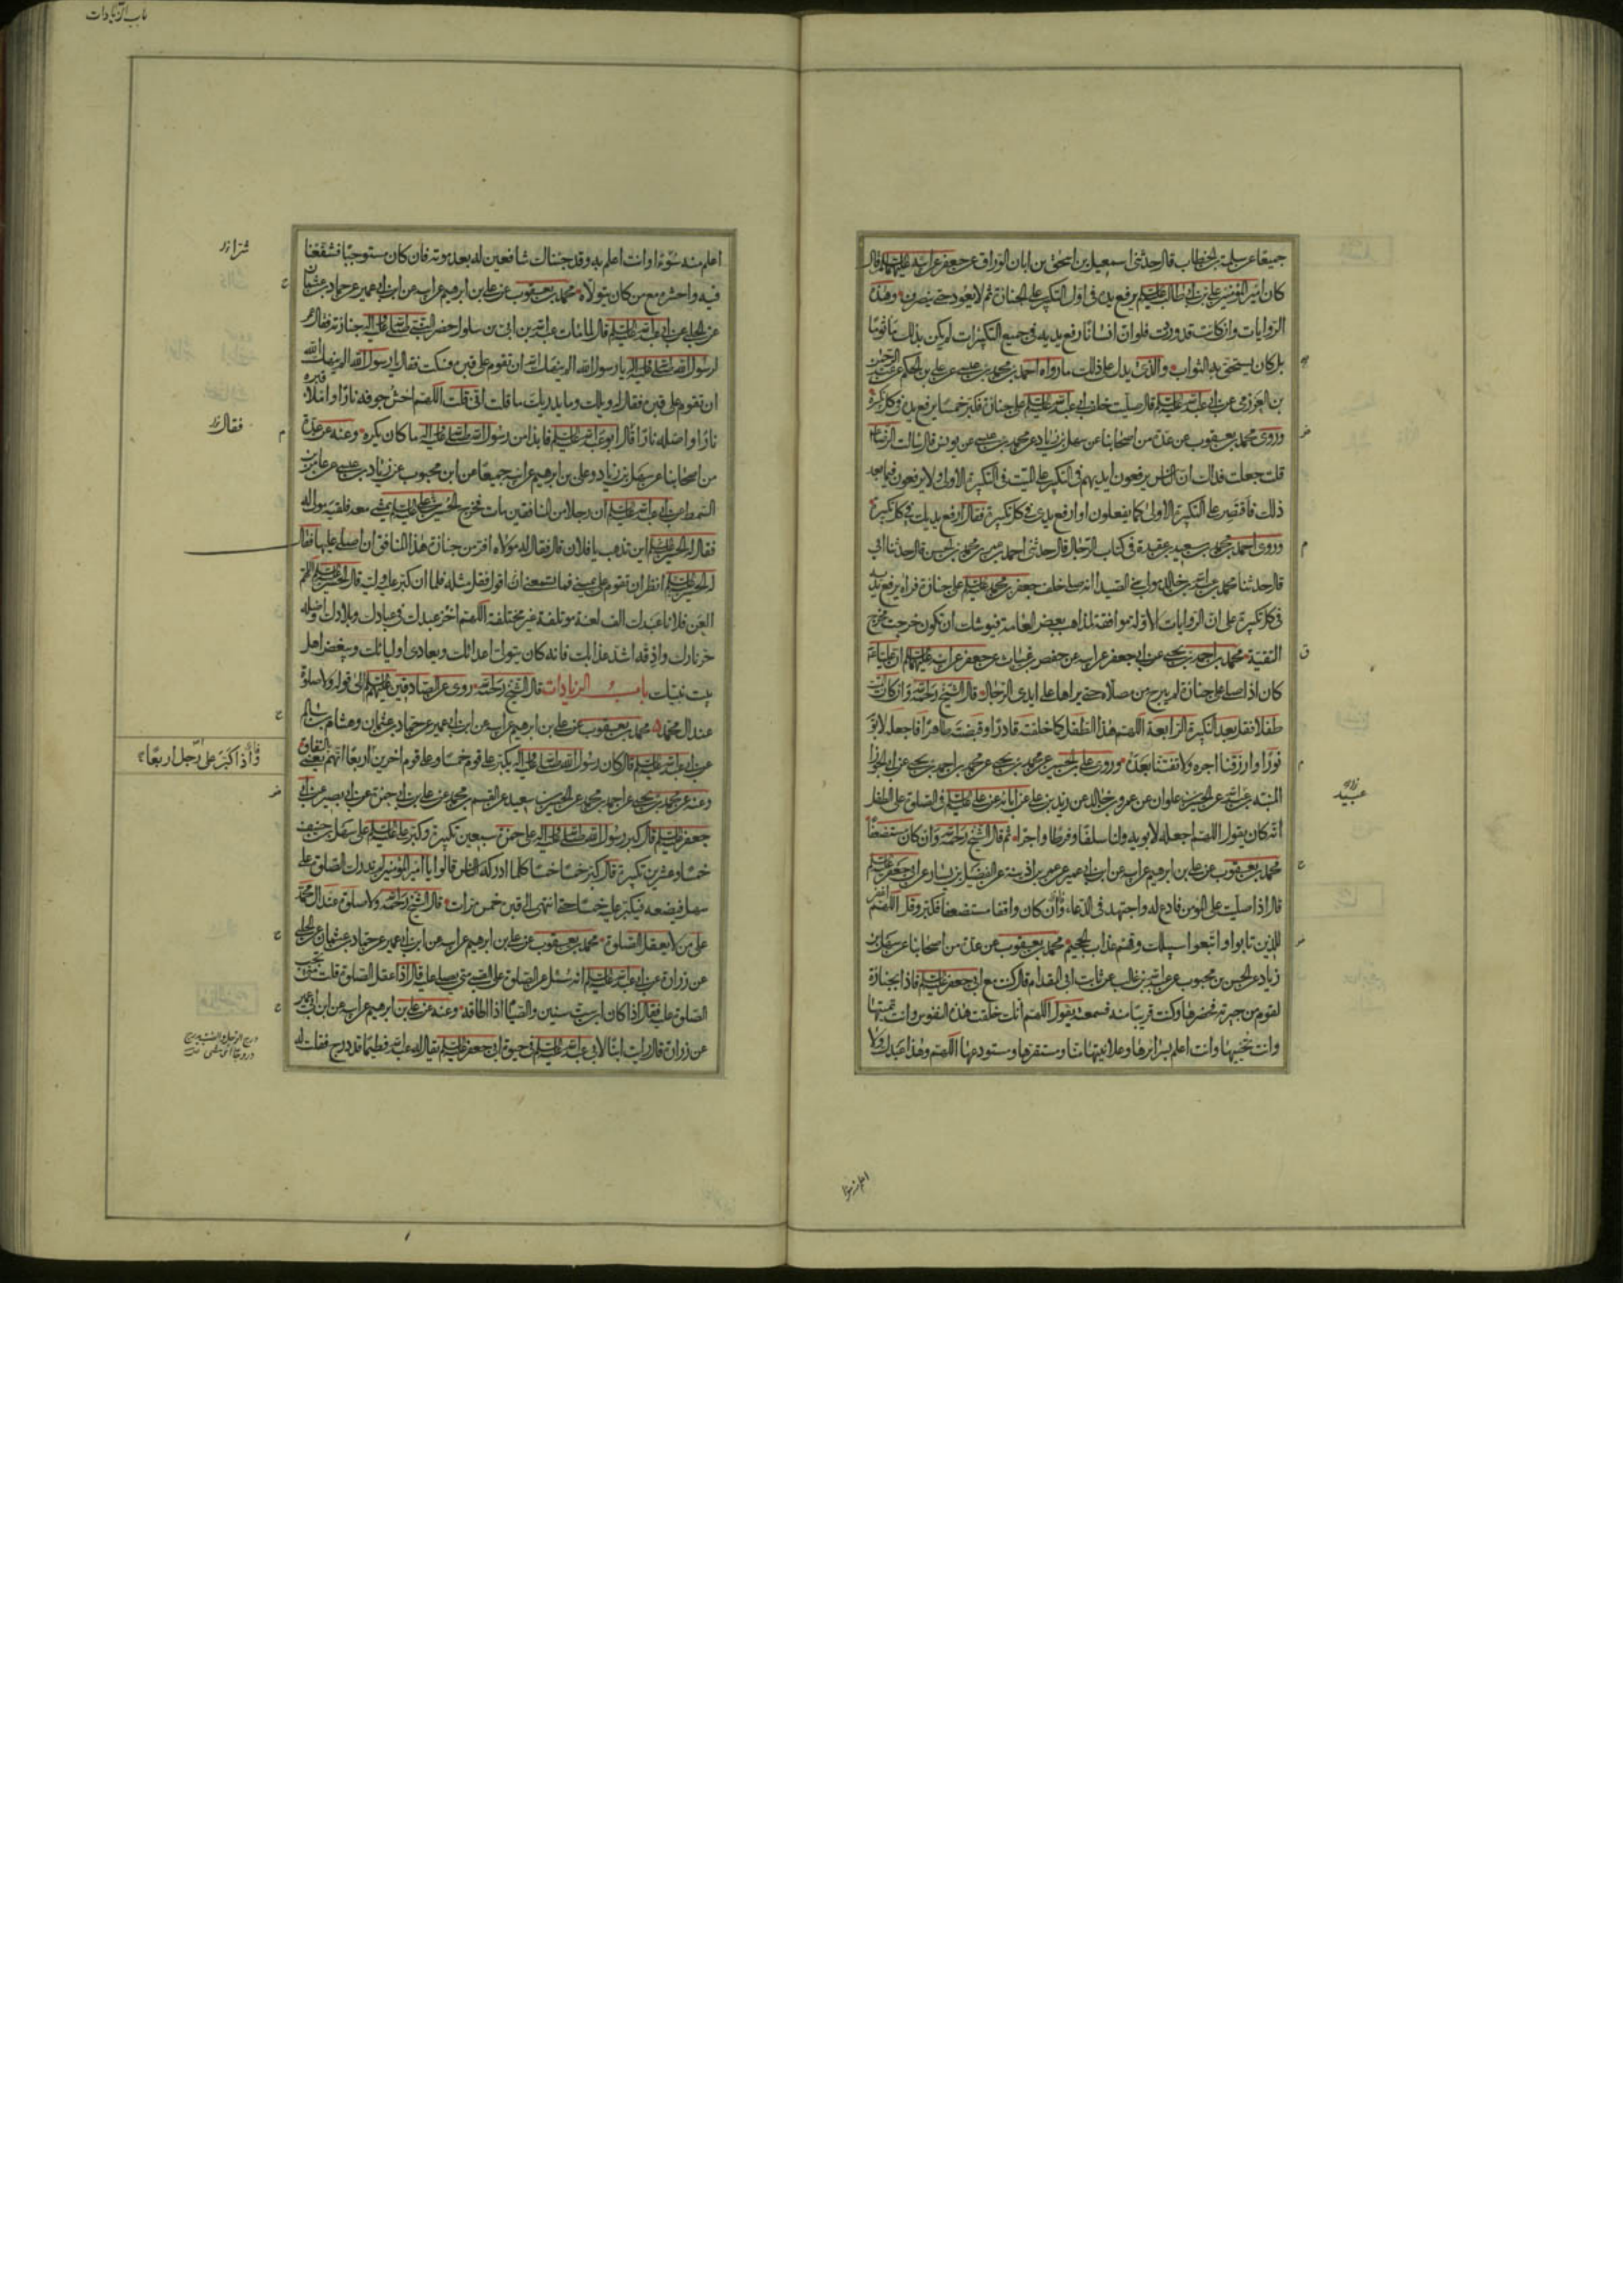 جميعًا عن سلمة بن الخطاب قال حدثني اسمعيل بن اسحق بن ابان الوراق عن جعفر عن ابيه عليهما السلم قال
كان امير المؤمنين علي بن ابي طالب عليه السلم يرفع يديه في اول التكبير على الجنازة ثم لا يعود حتى ينصرف وهذه
الروايات وان كانت قد وردت فلو ان انسانًا رفع يديه في جميع التكبيرات لم يكن بذلك مأثومًا
بل كان يستحق به الثواب والذي يدل على ذلك ما رواه احمد بن محمد بن عيسى عن علي بن الحكم عن عبد الرحمن
بن العرزمي عن ابي عبد الله عليه السلم قال صليت خلف ابي عبد الله عليه السلم على جنازة فكبر خمسًا يرفع يده في كل تكبيرة
وروى محمد بن يعقوب عن عدة من اصحابنا عن سهل بن زياد عن محمد بن عيسى عن يونس قال سالت الرضا عليه السلم
قلت جعلت فداك ان الناس يرفعون ايديهم في التكبير على الميت في التكبيرة الاولى ولا يرفعون فيما بعد
ذلك فاقتصر على التكبيرة الاولى كما يفعلون او ارفع يدي في كل تكبيرة فقال ارفع يديك في كل تكبيرة
وروى احمد بن محمد بن سعيد بن عقدة في كتاب الرجال قال حدثني احمد بن عمر بن محمد بن الحسن قال حدثنا ابي
قال حدثنا محمد بن عبد الله بن خالد مولى بني الصيدا انه صلى خلف جعفر بن محمد عليه السلم على جنازة فراه يرفع يديه
في كل تكبيرة على ان الروايات الاولة موافقة لمذاهب بعض العامة فيوشك ان تكون خرجت مخرج
التقية محمد بن احمد بن يحيى عن ابي جعفر عن ابيه عن حفص بن غياث عن جعفر عن ابيه عليهما السلم ان عليا ع
كان اذا صلى على جنازة لم يبرح من مصلاه حتى يراها على ايدي الرجال قال الشيخ رحمه الله وان كان الميت
طفلا فقل بعد التكبيرة الرابعة اللهم هذا الطفل كما خلقته قادرًا وقبضته طاهرًا فاجعله لابويه
نورًا وارزقنا اجره ولا تفتنا بعده وروى علي بن الحسين عن محمد بن يحيى عن محمد بن احمد بن يحيى عن ابي الجوزا
المنبه بن عبد الله عن الحسين بن علوان عن عمرو بن خالد عن زيد بن علي عن ابائه عن علي عليه السلم في الصلوة على الطفل
انه كان يقول اللهم اجعله لابويه ولنا سلفًا وفرطًا واجرًا ثم قال الشيخ رحمه الله وان كان مستضعفًا
محمد بن يعقوب عن علي بن ابرهيم عن ابيه عن ابن ابي عمير عن عمر بن اذينة عن الفضيل بن يسار عن ابي جعفر عليه السلم
قال اذا صليت على المؤمن فادع له واجتهد في الدعاء وان كان واقفا مستضعفا فكبر وقل اللهم اغفر
للذين تابوا واتبعوا سبيلك وقهم عذاب الجحيم محمد بن يعقوب عن عدة من اصحابنا عن سهل بن
زياد عن الحسن بن محبوب عن عبد الله بن غالب عن ثابت ابي المقدام قال كنت مع ابي جعفر عليه السلم فاذا بجنازة
لقوم من جيرته فحضرها وكنت قريبًا منه فسمعته يقول اللهم انك خلقت هذه النفوس وانت تميتها
وانت تحييها وانت اعلم بسرائرها وعلانيتها منا ومستقرها ومستودعها اللهم وهذا عبدك ولا
عبيد
اعلم منه سوءا
باب الزيادات
اعلم منه سُوءا وانت اعلم به وقد جئناك شافعين له بعد موته فان كان مستوجبًا فشفعنا
فيه واحشره مع من كان يتولاه محمد بن يعقوب عن علي بن ابرهيم عن ابيه عن ابن ابي عمير عن حماد بن عثمان
عن الحلبي عن ابي عبد الله عليه السلم قال لما مات عبد الله بن ابي بن سلول حضر النبي صلى الله عليه واله جنازته فقال عمر
لرسول الله صلى الله عليه واله يا رسول الله الم ينهك الله ان تقوم على قبره فسكت فقال يا رسول الله الم ينهك الله
ان تقوم على قبره فقال له ويلك وما يدريك ما قلت اني قلت اللهم احش جوفه نارًا واملأ قبره
نارًا واصله نارًا قال ابو عبد الله عليه السلم فابدا من رسول الله صلى الله عليه واله ما كان يكره وعنه عن عدة
من اصحابنا عن سهل بن زياد وعلي بن ابرهيم عن ابيه جميعًا من ابن محبوب عن زياد بن عيسى عن عامر بن
السمط عن ابي عبد الله عليه السلم ان رجلا من المنافقين مات فخرج الحسين بن علي عليه السلم يمشي معه فلقيه مولى له
فقال له الحسين عليه السلم اين تذهب يا فلان قال فقال له مولاه افر من جنازة هذا المنافق ان اصلي عليها فقال
له الحسين عليه السلم انظر ان تقوم على يميني فما تسمعني اقول فقل مثله فلما ان كبر عليه وليه قال الحسين عليه السلم اللهم
العن فلانا عبدك الف لعنة موتلفة غير مختلفة اللهم اخز عبدك في عبادك وبلادك واصله
حر نارك واذقه اشد عذابك فانه كان يتولى اعدائك ويعادي اوليائك ويبغض اهل
بيت نبيك باب الزيادات قال الشيخ رحمه الله روى عن الصادقين عليهم السلم الى قوله ولا صلوة
عند ال محمد ه محمد بن يعقوب عن علي بن ابرهيم عن ابيه عن ابن ابي عمير عن حماد بن عثمان وهشام بن سالم
عن ابي عبد الله عليه السلم قال كان رسول الله صلى الله عليه واله يكبر على قوم خمسًا وعلى قوم اخرين اربعًا اتهم يعني بالنفاق
وعنه عن محمد بن يحيى عن احمد بن محمد عن الحسين بن سعيد عن القسم بن محمد عن علي بن ابي حمزة عن ابي بصير عن ابي
جعفر عليه السلم قال كبر رسول الله صلى الله عليه واله على حمزة سبعين تكبيرة وكبر علي عليه السلم على سهل بن حنيف
خمسًا وعشرين تكبيرة قال كبر خمسًا خمسًا كلما ادركه الناس قالوا يا امير المؤمنين لم ندرك الصلوة على
سهل فيضعه فيكبر عليه خمسًا حتى انتهى الى قبره خمس مرات قال الشيخ رحمه الله ولا صلوة عند ال محمد
على من لا يعقل الصلوة محمد بن يعقوب عن علي بن ابرهيم عن ابيه عن ابن ابي عمير عن حماد بن عثمان عن الحلبي
عن زرارة عن ابي عبد الله عليه السلم انه سئل عن الصلوة على الصبي متى يصلى عليه قال اذا عقل الصلوة قلت متى تجب
الصلوة عليه فقال اذا كان ابن ست سنين والصيام اذا اطاقه وعنه عن علي بن ابرهيم عن ابيه عن ابن ابي عمير
عن زرارة قال رايت ابنًا لابي عبد الله عليه السلم في حيوة ابي جعفر عليه السلم يقال له عبد الله فطيم قد درج فقلت له
شرا
فقال
فاذا كبر على رجل اربعًا